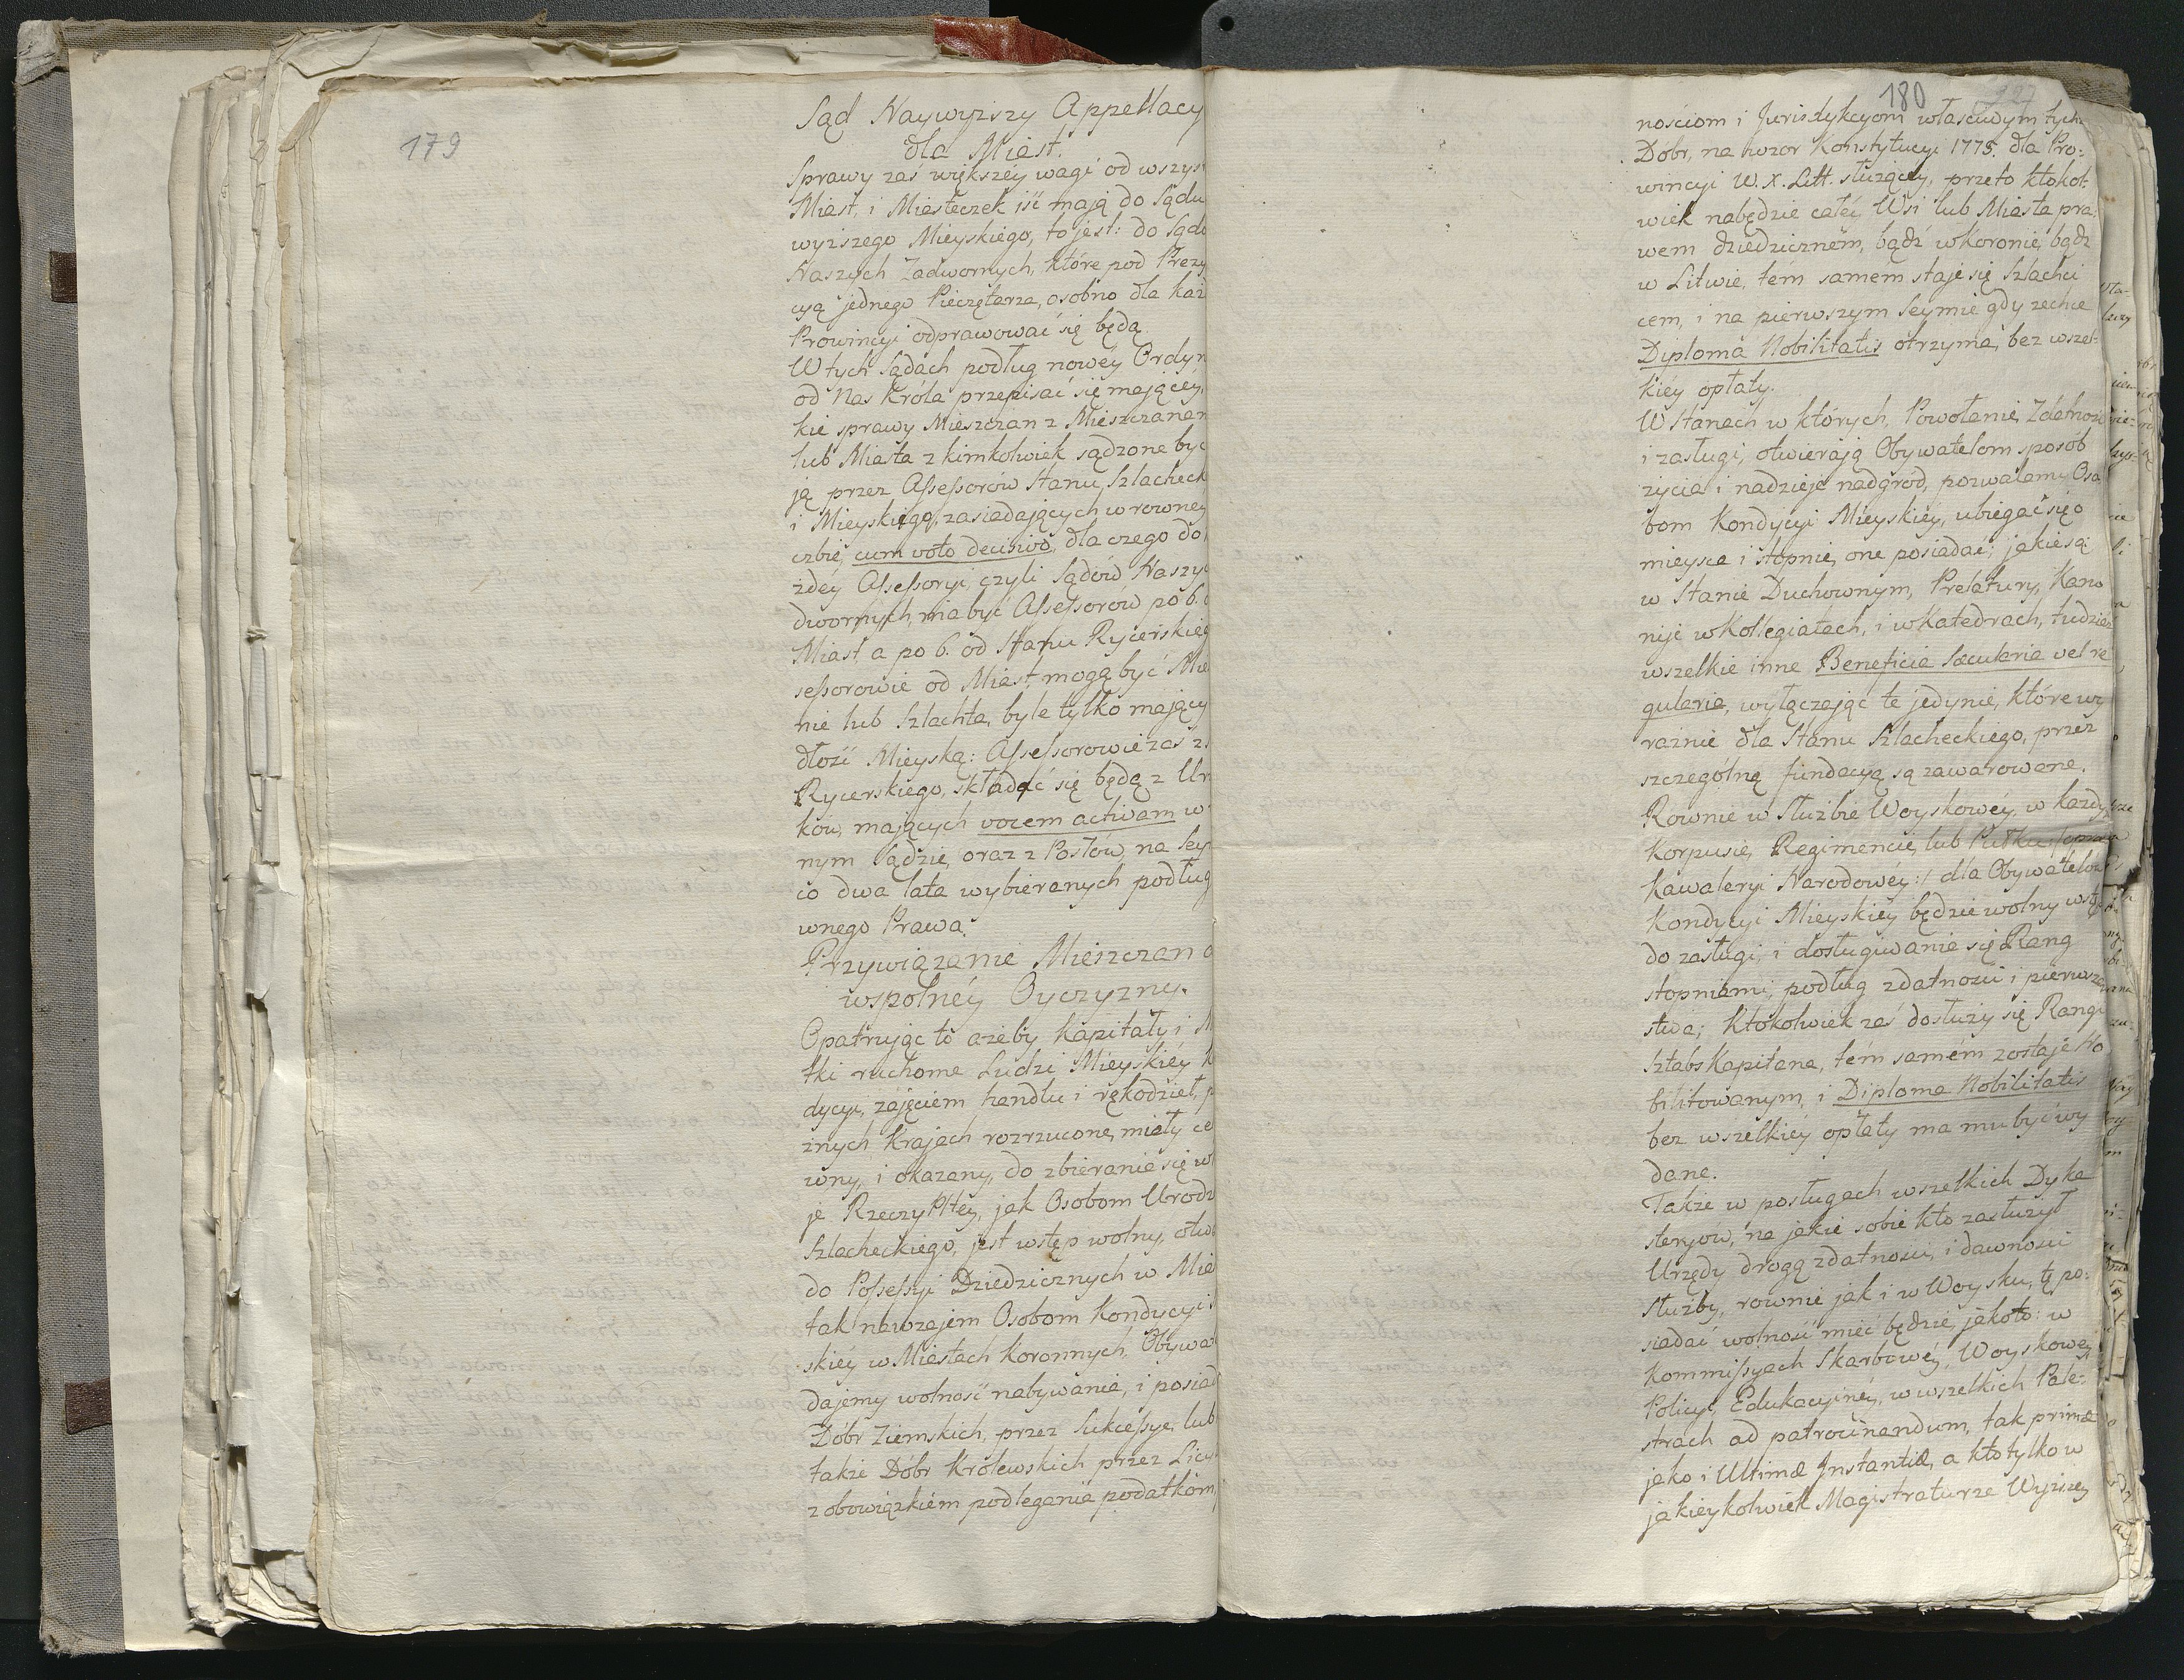 179
Sąd Naywyższy Appellacy
dla Miast.
Sprawy zaś większey wagi od wszys
Miast, i Miasteczek iśc mają do Sądu
wyższego Mieyskiego, to jest: do Sądo
Naszych Zadwornych, które pod Prezy
cyą jednego Pieczętarza, osobno dla każ
Prowincyi odprawować się będą.
W tych Sądach podług nowéy Ordyn
od Nas Króla przepisać się mającéy,
kie sprawy Mieszczan z Mieszczanam
lub Miasta z kimkolwiek sądzone być
ją przez Assessorów Stanu Szlacheck
i Mieyskiego, zasiadających w rowney
czbie, cum voto decisivo, dla czego do
żdey Assessoryi, czyli Sądów Naszyc
dwornych, ma być Assessorów po 6. o
Miast, a po 6. od Stanu Rycerskieg
sessorowie od Miast, mogą być Mie
nie lub Szlachta, byle tylko mający
dłość Mieyską: Assessorowie zaś z
Rycerskiego, składać się będą z Urz
ków, mających vocem activam w
nym Sądzie, oraz z Posłów, na Sey
co dwa lata wybieranych podług
wnego Prawa.
Przywiązanie Mieszczan d
wspolnéy Oyczyzny.
Opatrując to ażeby kapitały i M
tki ruchome Ludzi Mieyskiéy K
dycyi, zajęciem handlu i rękodzieł, p
żnych krajach rozrzucone, miały ce
wny, i okazany, do zbierania się w
je RzeczyPltéy, jak Osobom Urodz
Szlacheckiego, jest wstęp wolny, otwa
do Possessyi Dziedzicznych w Mie
tak nawzajem Osobom Kondycyi
skiéy w Miastach Koronnych, Obywa
dajemy wolność nabywania, i posiad
Dóbr Ziemskich, przez Sukcessye, lub
także Dóbr Królewskich przez Licy
z obowiązkiem podlegania podatkom,
180
nościom i Jurisdykcyom właściwym tych
Dóbr, na wzor Konstytucyi 1775. dla Pro=
wincyi W. X. Litt. służącey, przeto ktokol=
wiek nabędzie całéy Wsi lub Miasta pra=
wem dziedzicznem, bądź w Koronie, bądz
w Litwie, tém samém staje się Szlachci
cem, i na pierwszym Seymie gdy zechce
Diploma Nobilitatis otrzyma, bez wszel=
kiey opłaty.
W Stanach w których, Powołanie, Zdatnośc
i zasługi, otwierają Obywatelom sposób
życia i nadzieję nadgród, pozwalamy Oso
bom Kondycyi Mieyskiéy, ubiegać się o
mieysca i stopnie, one posiadać; jakie są
w Stanie Duchownym, Prelatury, Kano
nije w Kollegiatach, i w Katedrach, tudziéż
wszelkie inne Beneficia Sæcularia vel re
gularia, wyłączając te jedynie, które wy
raźnie dla Stanu Szlacheckiego, przez
szczególną fundacyą są zawarowane.
Rownie w Służbie Woyskowéy, w każdy
Korpusie, Regimencie, lub Pułku
Kawaleryi Narodowéy:/ dla Obywatelow
Kondycyi Mieyskiéy będzie wolny wstę
do zasługi, i dosługiwania się Rang
stopniami, podług zdatności i pierwsze
stwa; Ktokolwiek zaś dosłuży się Rangi
SztabsKapitana, tém samém zostaje No
bilitowanym, i Diploma Nobilitatis
bez wszelkiéy opłaty ma mu być wy
dane.
Także w posługach wszelkich Dyka
steryów, na jakie sobie kto zasłuży
Urzędy drogą zdatności, i dawności
Służby, rownie jak i w Woysku, tę po=
siadać wolność mieć będzie, jakoto: w
Kommissyach Skarbowéy, Woyskowéy
Policyi, Edukacyinéy, w wszelkich Pale=
strach ad patrocinandum, tak primæ
jako i Ultimæ Instantiæ, a kto tylko w
jakieykolwiek Magistraturze Wyższey